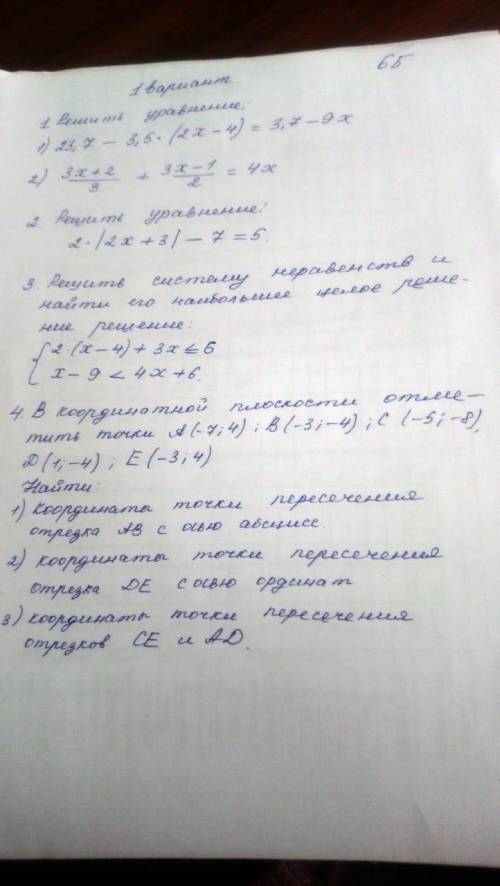 6Б
1 вариант.
1. Решить уравнение:
1) 23,7 - 3,5 · (2x - 4) = 3,7 - 9x
2) (3x + 2)/3 + (3x - 1)/2 = 4x
2. Решить уравнение:
2 · |2x + 3| - 7 = 5.
3. Решить систему неравенств и
найти его наибольшее целое реше-
ние решение:
{ 2 · (x - 4) + 3x ≤ 6
x - 9 < 4x + 6.
4. В координатной плоскости отме-
тить точки A (-7; 4) ; B (-3; -4) ; C (-5; -8),
D (1; -4) ; E (-3; 4)
Найти:
1) координаты точки пересечения
отрезка AB с осью абсцисс.
2) координаты точки пересечения
отрезка DE с осью ординат
3) координаты точки пересечения
отрезков CE и AD.